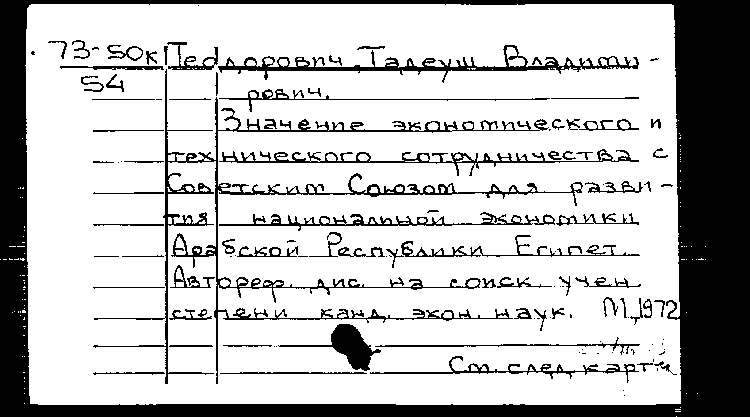 73-50к Теодорович, Тадеуш Владими-
54
рович.
Значение экономического и
технического сотрудничества с
Советским Союзом для разви-
тия национальной экономики
Арабской Республики Египет.
Автореф. дис. на соиск. учен.
степени канд. экон. наук. М., 1972
См. след. карт.